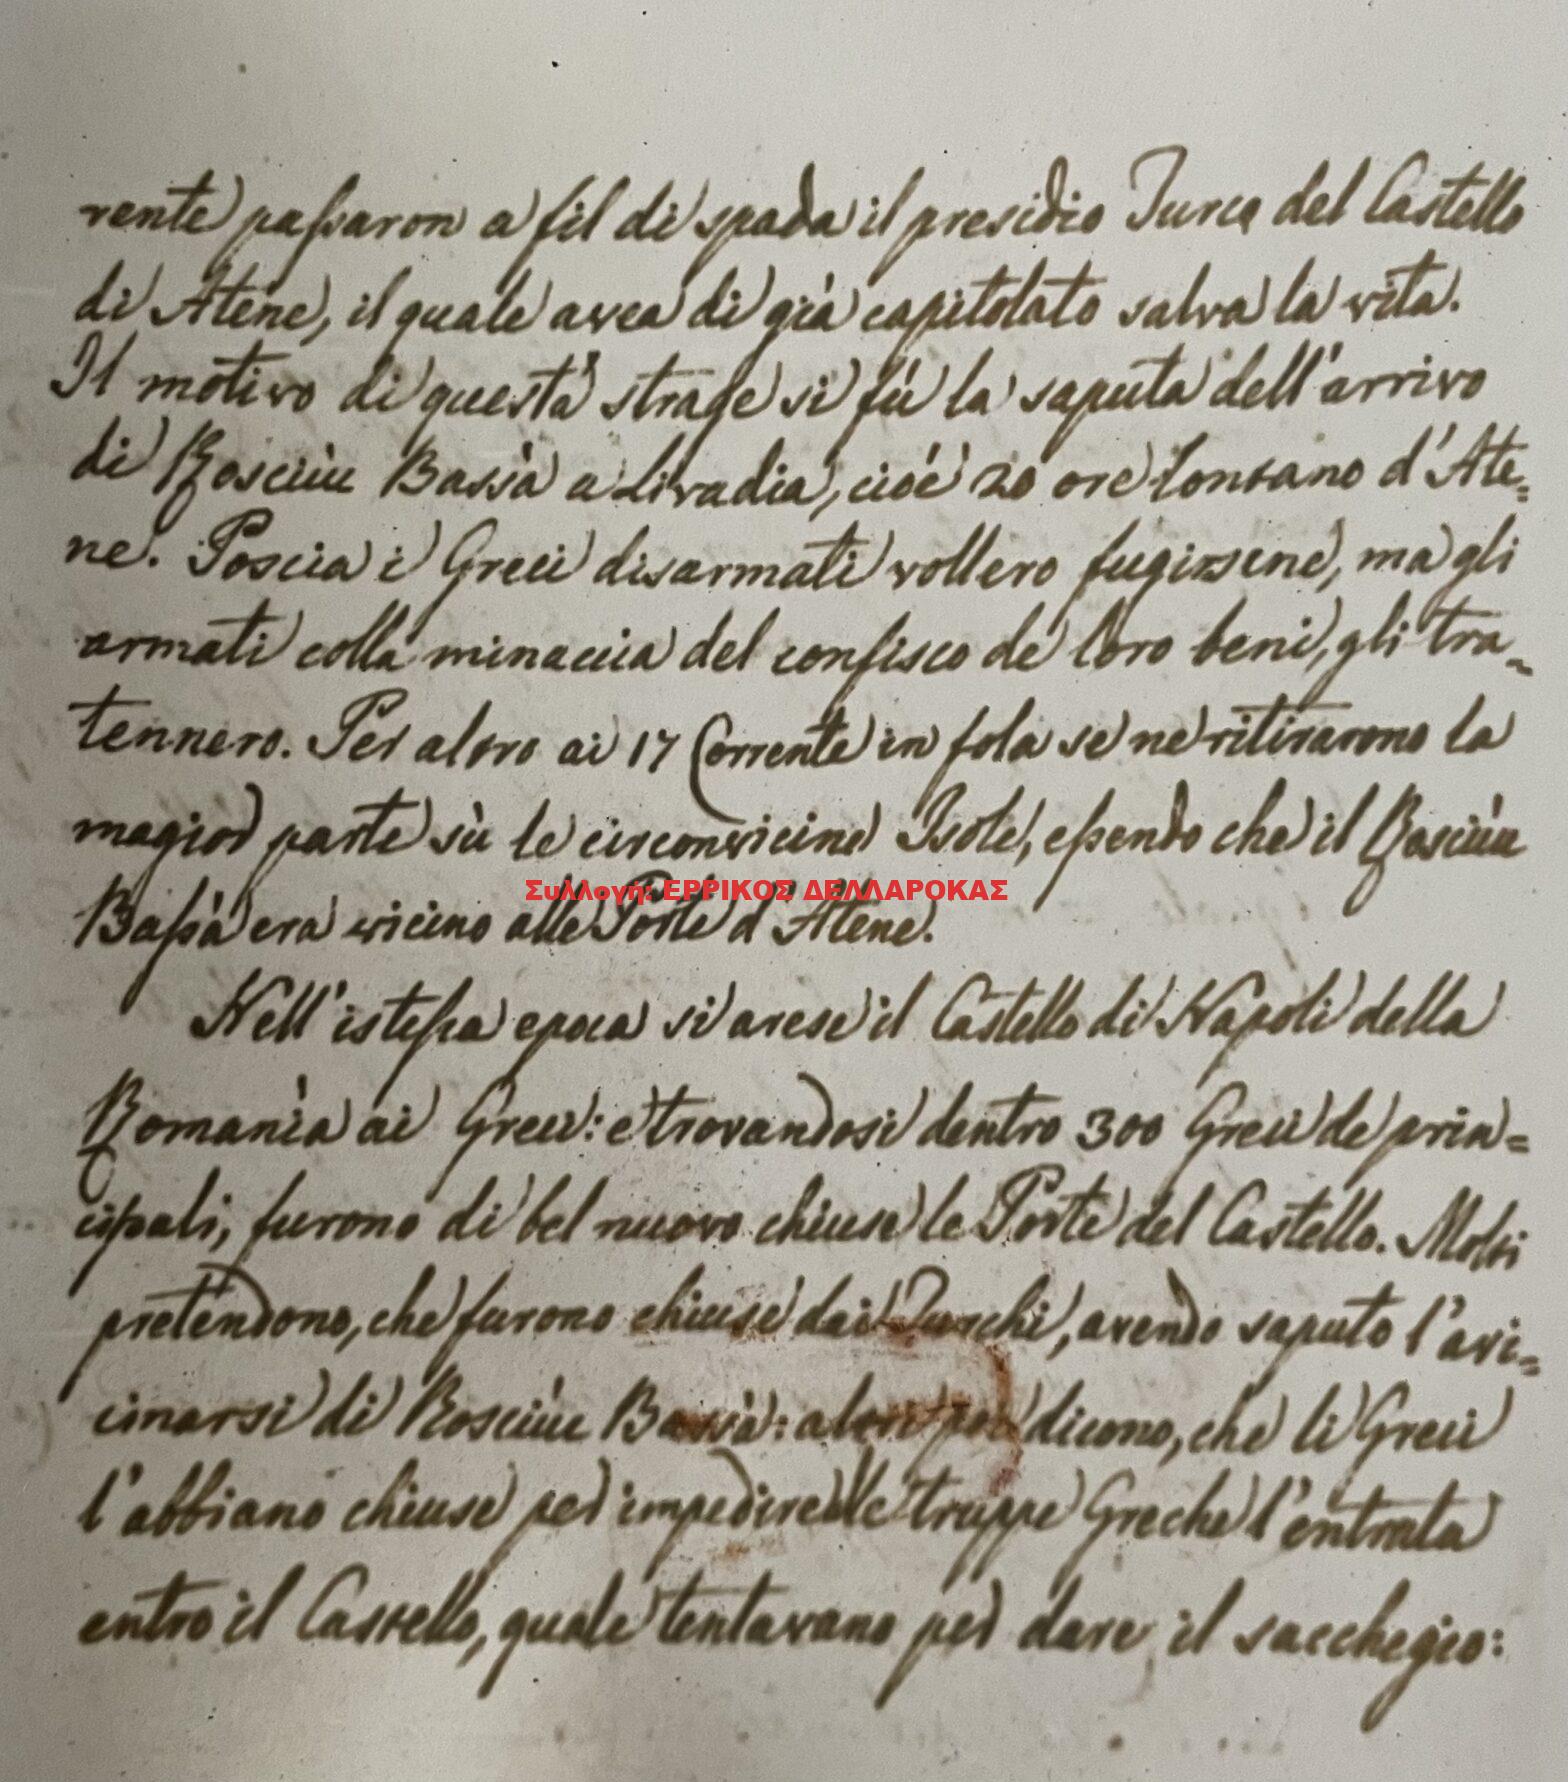 rente passaron a fil di spada il presidio Turco del Castello
di Atene, il quale avea di già capitolato salva la vita.
Il motivo di questa strage si fù la saputa dell'arrivo
di Rosciùu Bassà a Livadia, cioè 20 ore lontano d'Ate=
ne. Poscia i Greci disarmati vollero fugirsene, ma gli
armati colla minaccia del confisco de loro beni, gli tra=
tennero. Per altro ai 17 Corrente in fola se ne ritirarono la
magior parte sù le circonvicine Isole, essendo che il Rosciùu
Συλλογή: ΕΡΡΙΚΟΣ ΔΕΛΛΑΡΟΚΑΣ
Bassà era vicino alle Porte d'Atene.
Nell'istessa epoca si arese il Castello di Napoli della
Romanìa ai Greci: e trovandosi dentro 300 Greci de prin=
cipali, furono di bel nuovo chiuse le Porte del Castello. Molti
pretendono, che furono chiuse dai Turchi, avendo saputo l'avi=
cinarsi di Rosciùu Bassà: altri poi dicono, che li Greci
l'abbiano chiuse per impedire alle truppe Greche l'entrata
entro il Castello, quale tentavano per dare il sacchegio: